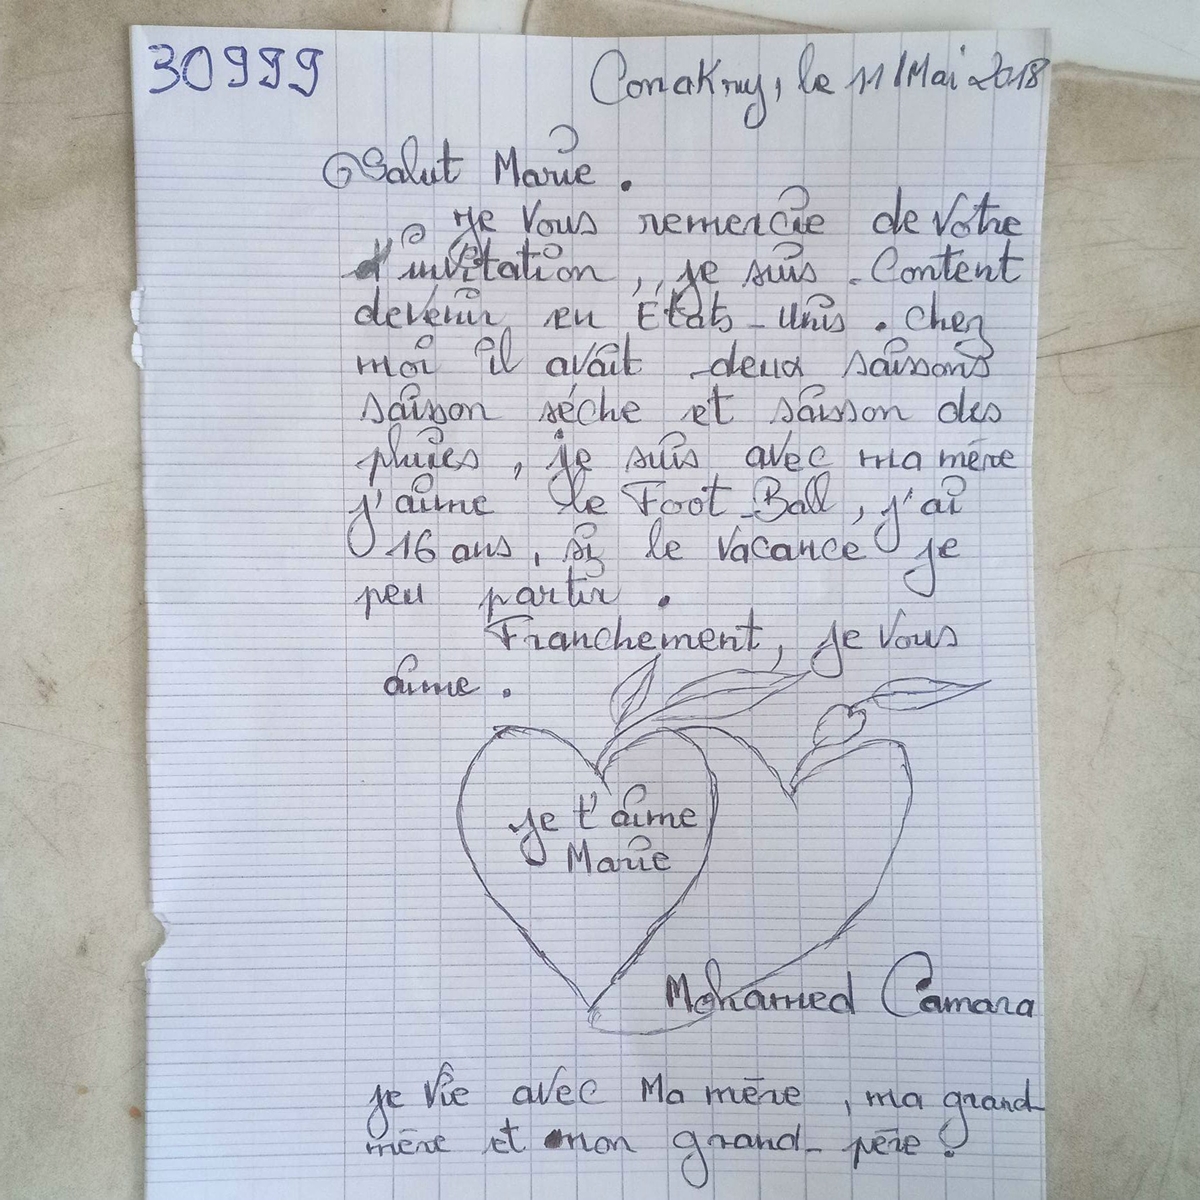 30999
Conakry, le 11/Mai 2018
Salut Marie.
je vous remercie de votre
d'invitation, je suis content
devenir en États-Unis. chez
moi il avait deux saisons
saison séche et saison des
pluies, je suis avec ma mère
j'aime le Foot-Ball, j'ai
16 ans, si le vacance je
peu partir.
Franchement, je vous
aime.
je t'aime
Marie
Mohamed Camara
je vie avec Ma mère, ma grand
mère et mon grand-père.